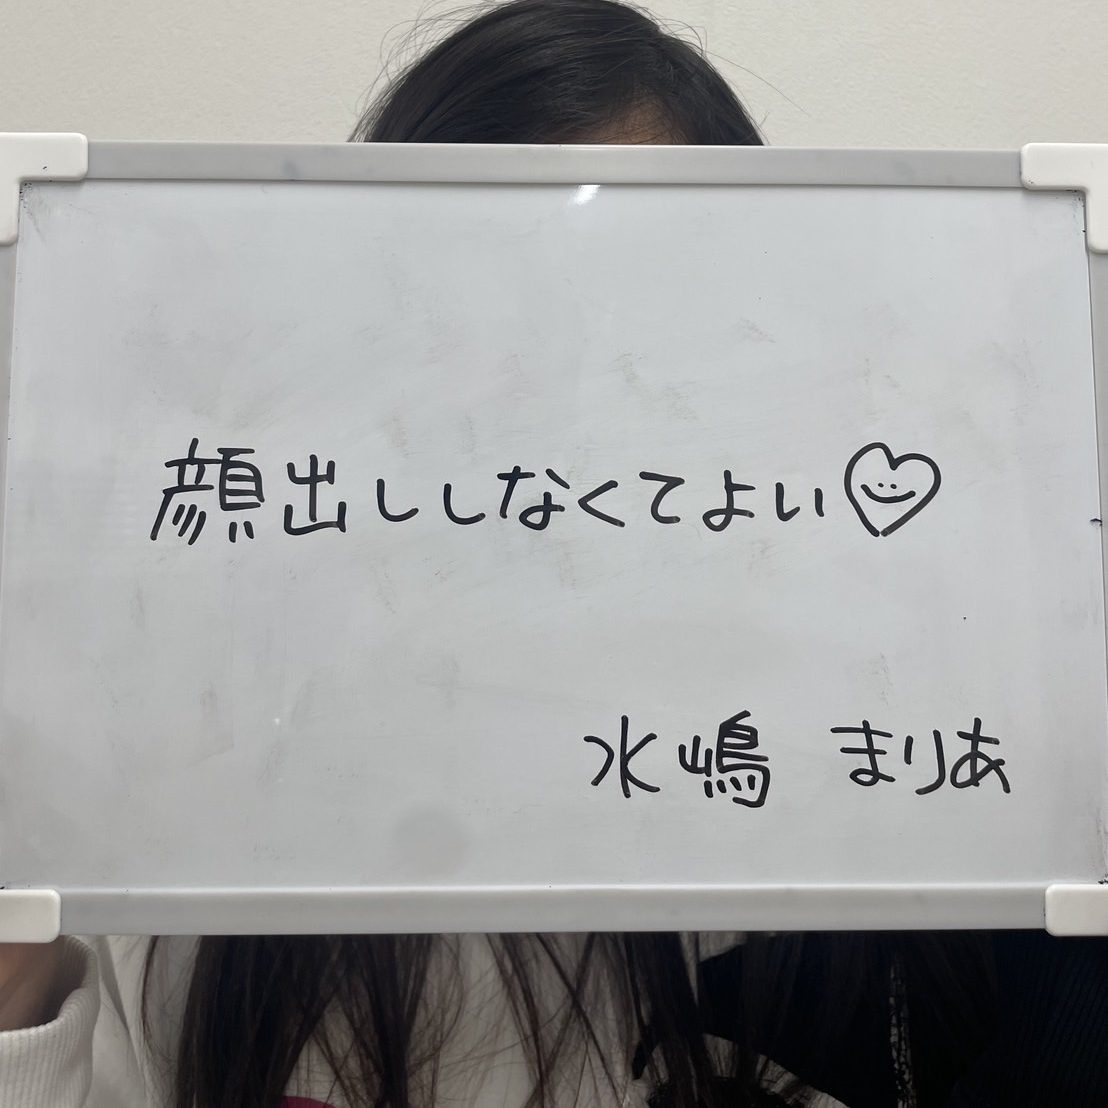 顔出ししなくてよい♡
水嶋 まりあ